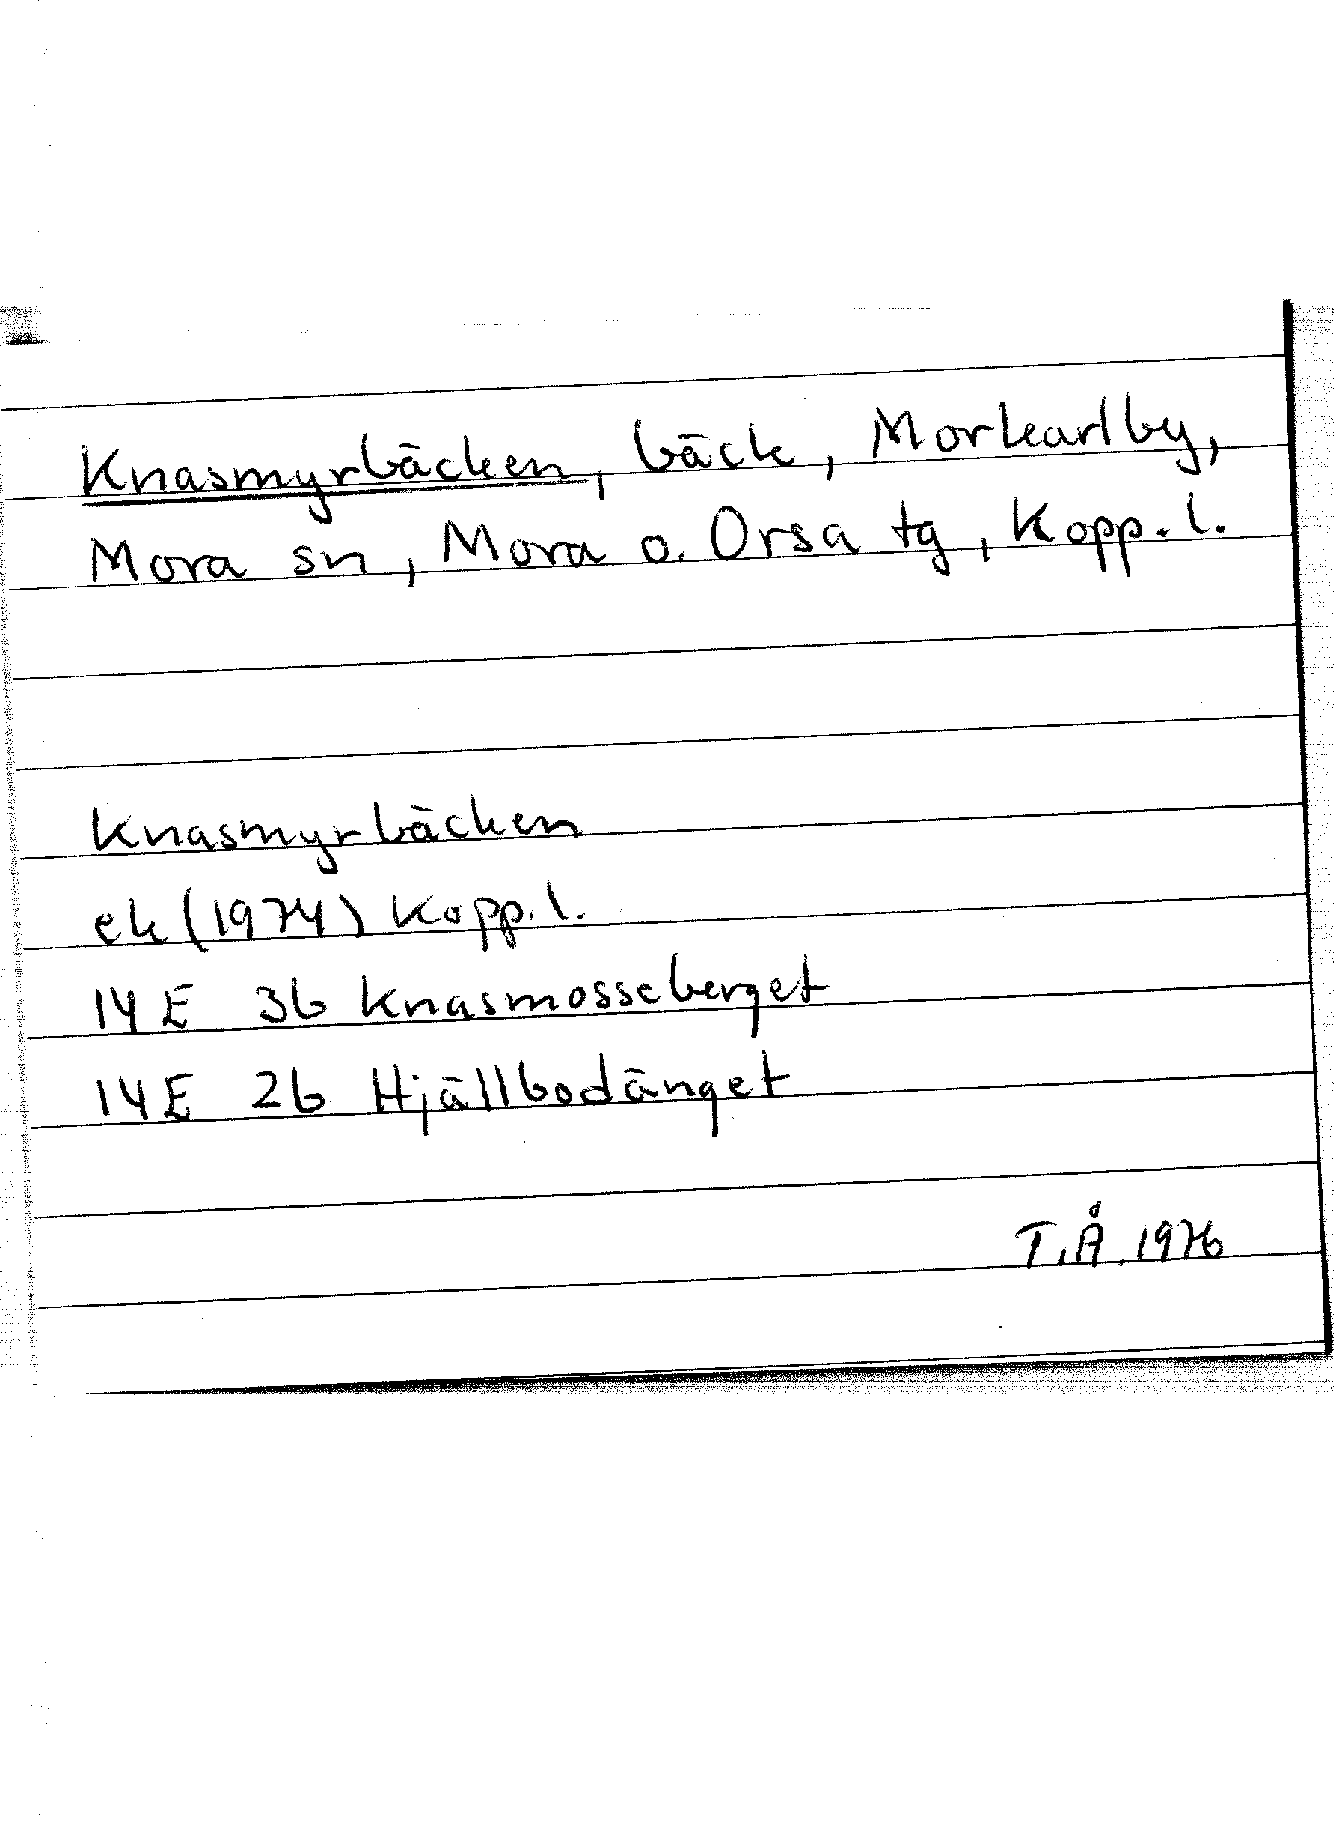 Knasmyrbäcken, bäck, Morkarlby,
Mora sn, Mora o. Orsa tg, Kopp. l.
Knasmyrbäcken
ek (1974) Kopp. l.
14 E 3b Knasmosseberget
14 E 2b Hjällbodänget
T.Å. 1976